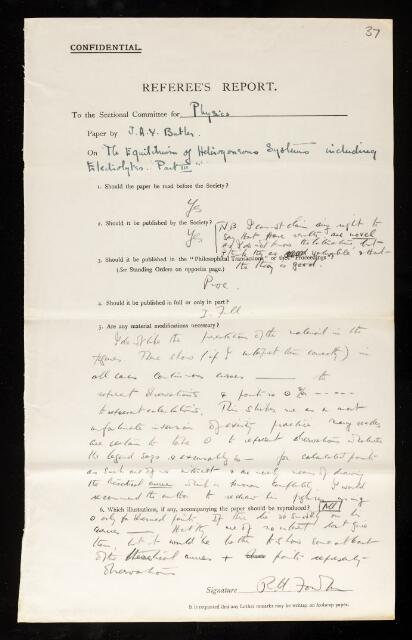 37
CONFIDENTIAL.
REFEREE'S REPORT.
To the Sectional Committee for Physics
Paper by J.A.V. Butler.
On "The Equilibrium of Heterogeneous Systems including
Electrolytes. Part III"
1. Should the paper be read before the Society?
Yes
2. Should it be published by the Society?
Yes
NB. I cannot claim any right to
say that these results are novel
as I do not know the literature, but
I think they are valuable & that
the theory is good.
3. Should it be published in the "Philosophical Transactions" or the "Proceedings"?
(See Standing Orders on opposite page.)
Proc.
4. Should it be published in full or only in part?
In full
5. Are any material modifications necessary?
I do not like the presentation of the material in the
figures. These show (if I interpret them correctly) in
all cases continuous curves — to
represent observations & points
to represent calculations. This strikes me as a most
unfortunate inversion of existing practice. Many readers
are certain to take to represent observations whatever
the legend says for calculated points
as such are of no interest & are merely means of drawing
the theoretical curve which is known completely. I would
recommend the author to redraw his figures using
6. Which illustrations, if any, accompanying the paper should be reproduced? All
only for observed points. If
curves
of the theoretical curves + points representing
observations
Signature R.H. Fowler
It is requested that any further remarks may be written on foolscap paper.